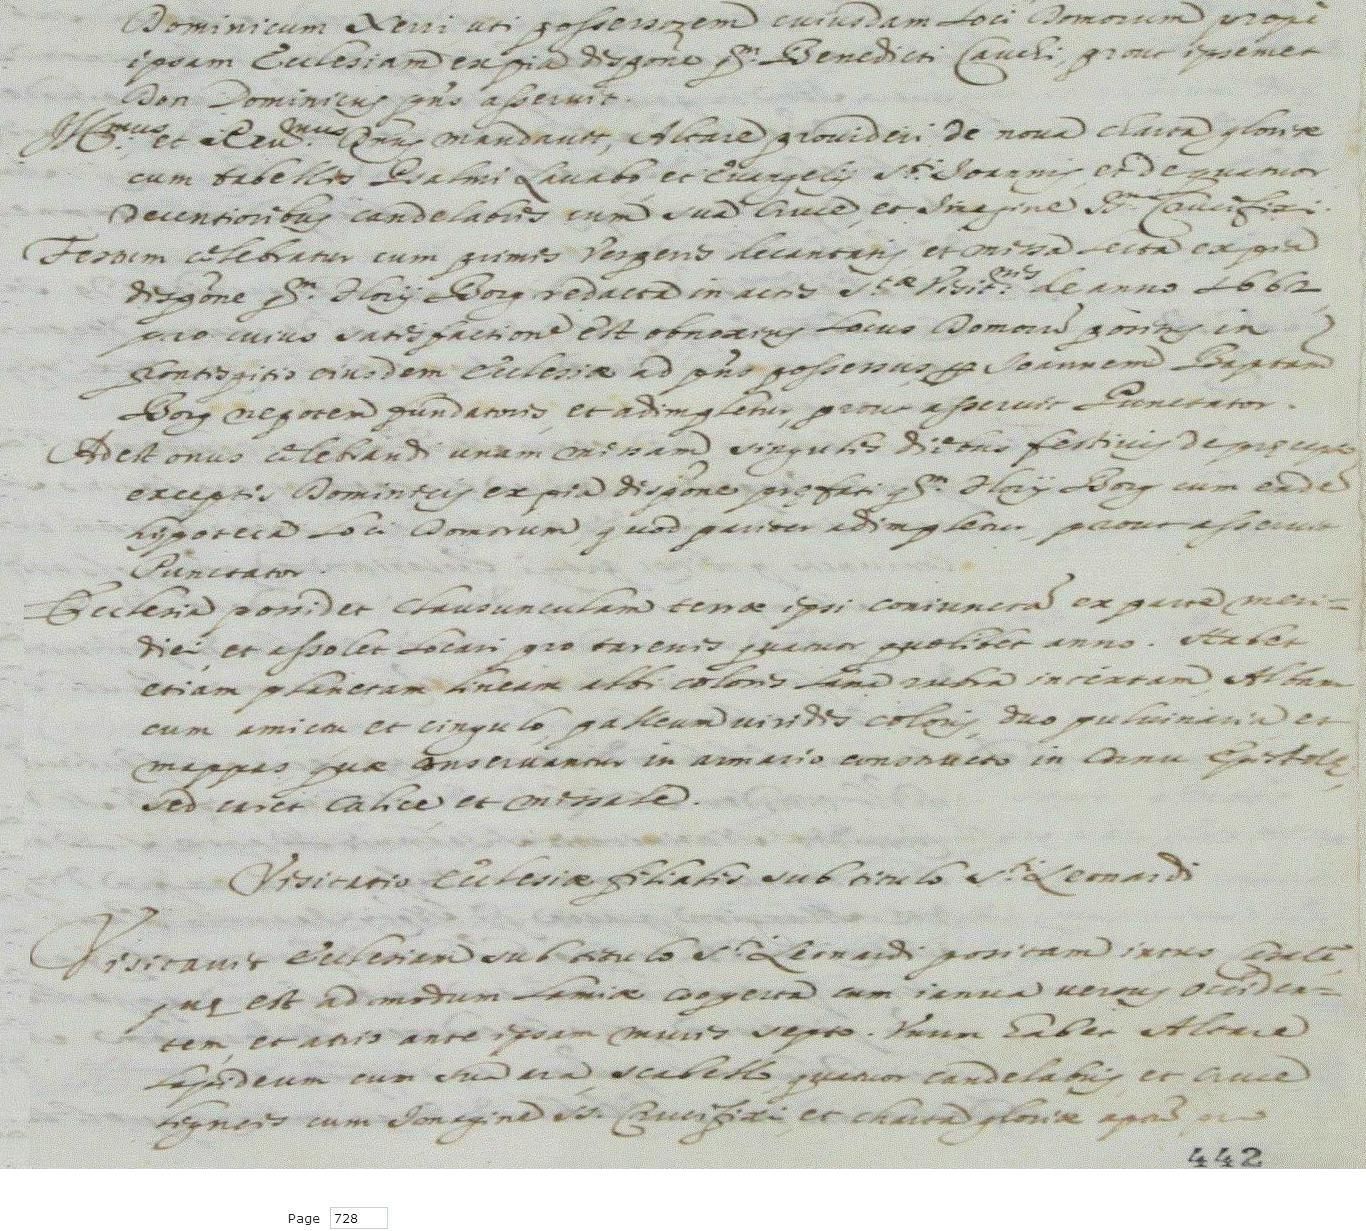 Dominicum Xerri uti possessorem cuiusdam Loci Domorum propè
ipsam Ecclesiam ex pia dispõne qm. Benedicti Cauchi, prout ipsemet
Don Dominicus pñs asseruit.
Illmus. et Revmus. Dñus mandavit, Altare provideri de nova charta gloriæ
cum tabellis Psalmi Lavabo et Evangelij Sti. Joannis, et de quatuor
decentioribus candelabris cum sua Cruce, et Imagine SSmi Crucifixi.
Festum celebratur cum primis Vesperis decantatis, et missa lecta ex pia
dispõne qm. Horij Borg redacta in actis Stæ Visitnis. de anno 1662
pro cuius satisfactione est obnoxius Locus Domorũ positus in
frontispitio eiusdem Ecclesiæ ad pñs possessus p Joannem Baptam
Borg nepotem fundatoris, et adimpletur, prout asseruit Punctator.
Adest onus celebrandi unam missam singulis diebus festivis de præcepto
exceptis Dominicis ex pia dispõne præfati qm. Horij Borg cum eadẽ
hypoteca Loci Domorum, quod pariter adimpletur, prout asseruit
Punctator.
Ecclesia possidet clausunculam terræ ipsi coniunctã ex parte meri=
diei, et assolet locari pro tarenis quatuor quolibet anno. Habet
etiam planetam lineam albi coloris lana rubra intextam, Albam
cum amictu et cingulo, palleum viridis coloris, duo pulvinaria et
mappas quæ conservantur in armario constructo in cornu Epistolæ,
sed caret Calice et missale.
Visitatio Ecclesiæ filialis sub titulo Sti. Leonardi
Visitavit Ecclesiam sub titulo Sti. Leonardi positam intus Casale,
quæ est ad modum Lamiæ cooperta cum ianua versus occiden=
tem, et atrio ante ipsam muris septo. Unum habet Altare
Lapideum cum sua ara, scabello, quatuor candelabris, et Cruce
ligneis cum Imagine SS. Crucifixi, et charta gloriæ
442
Page 728